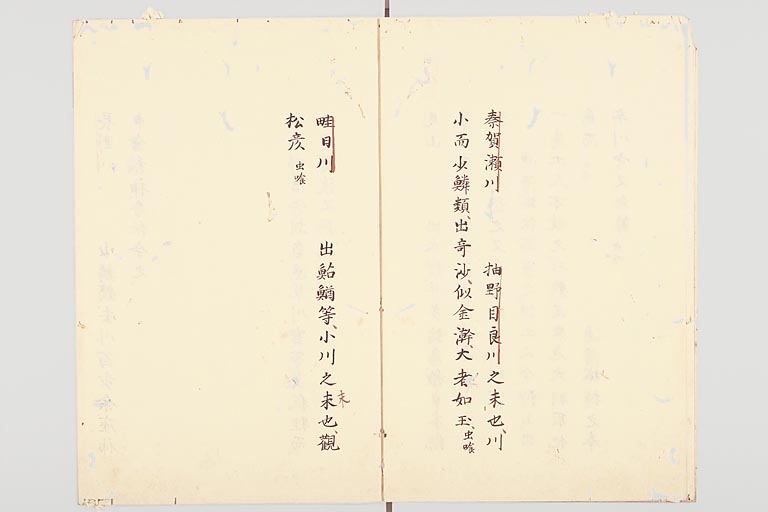 秦賀瀬川　抽野目良川之末也、川
小而少鱗類、出奇沙、似金澥、大者如玉、虫喰
畦日川　出鮎鰌等、小川之末也、観
末
松彦　虫喰